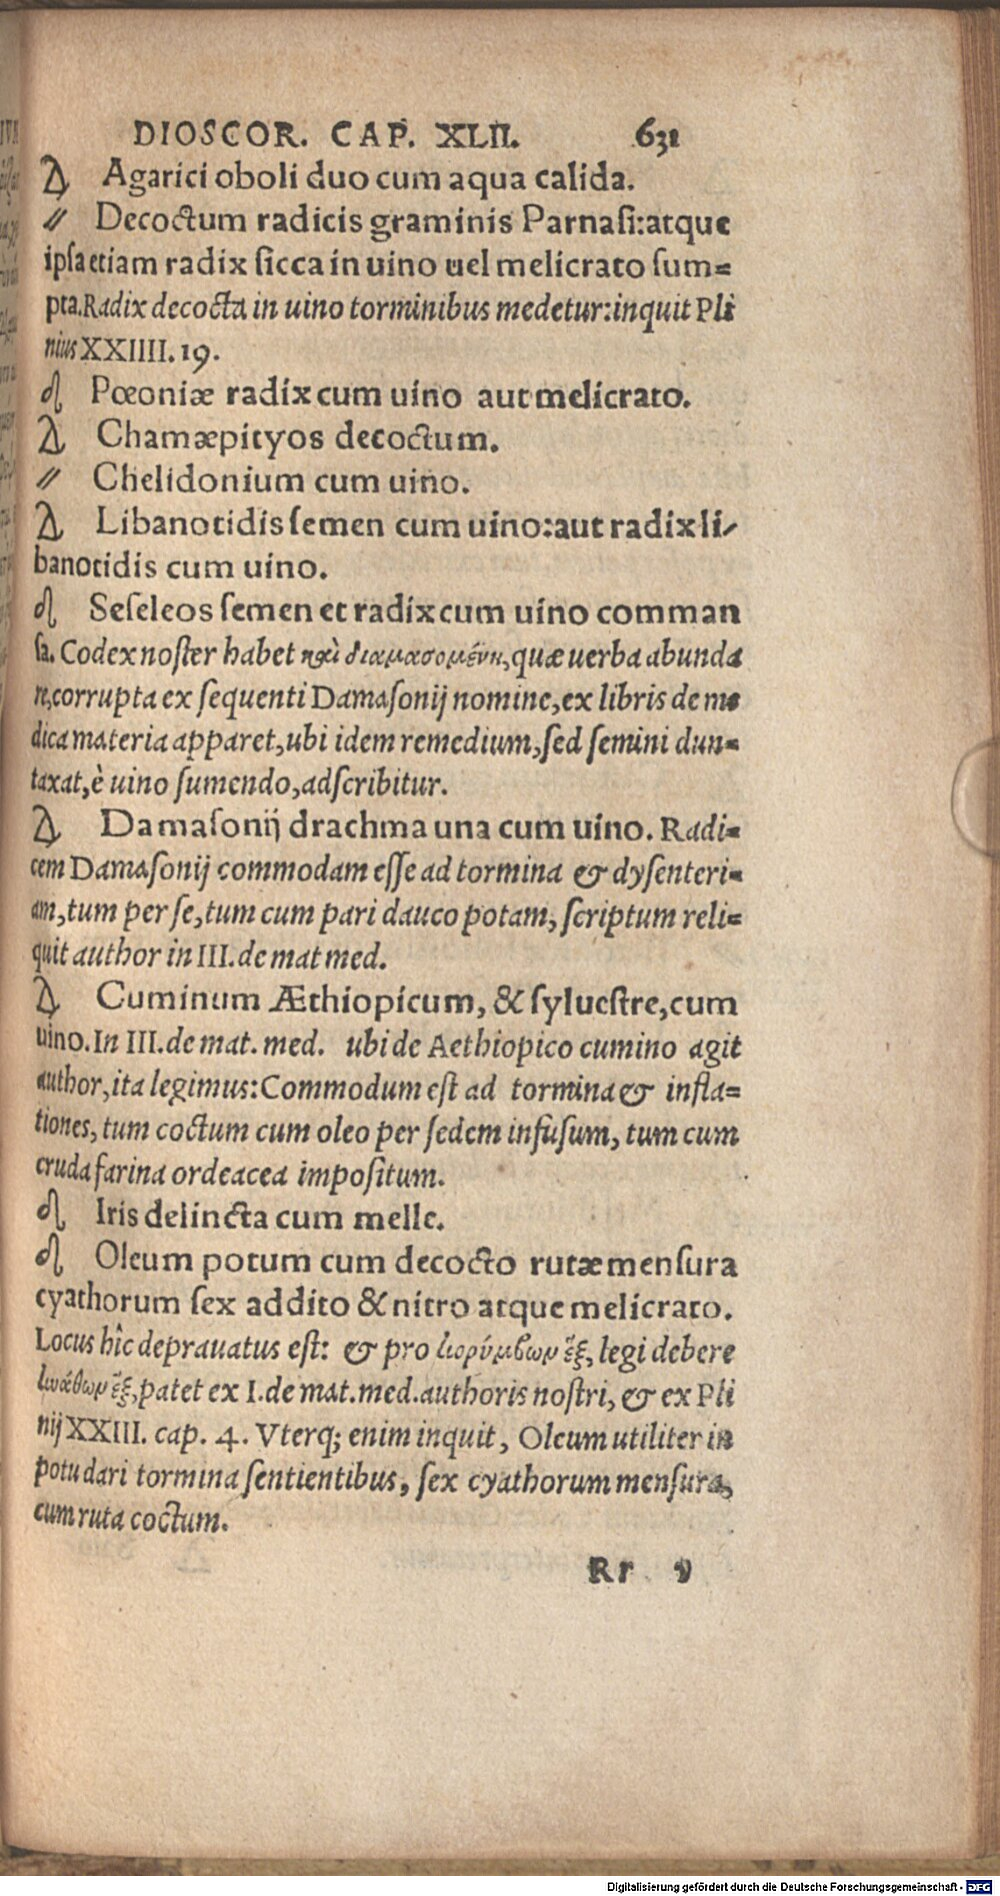 DIOSCOR. CAP. XLII. 631
Agarici oboli duo cum aqua calida.
〃 Decoctum radicis graminis Parnasi:atque
ipsa etiam radix sicca in uino uel melicrato sum=
pta. Radix decocta in uino torminibus medetur:inquit Pli
nius XXIIII. 19.
Pœoniæ radix cum uino aut melicrato.
Chamæpityos decoctum.
〃 Chelidonium cum uino.
Libanotidis semen cum uino:aut radix li-
banotidis cum uino.
Seseleos semen et radix cum uino comman
sa. Codex noster habet καὶ διαμασομένη, quæ uerba abunda
re, corrupta ex sequenti Damasonij nomine, ex libris de me
dica materia apparet, ubi idem remedium, sed semini dun=
taxat, è uino sumendo, adscribitur.
Damasonij drachma una cum uino. Radi=
cem Damasonij commodam esse ad tormina & dysenteri=
am, tum per se, tum cum pari dauco potam, scriptum reli=
quit author in III. de mat med.
Cuminum Æthiopicum, & syluestre, cum
uino. In III. de mat. med. ubi de Aethiopico cumino agit
author, ita legimus: Commodum est ad tormina & infla=
tiones, tum coctum cum oleo per sedem infusum, tum cum
cruda farina ordeacea impositum.
Iris delincta cum melle.
Oleum potum cum decocto rutæ mensura
cyathorum sex addito & nitro atque melicrato.
Locus hîc deprauatus est: & pro κορύμβων ἓξ, legi debere
κυάθων ἓξ, patet ex I. de mat. med. authoris nostri, & ex Pli
nij XXIII. cap. 4. Vterq; enim inquit, Oleum utiliter in
potu dari tormina sentientibus, sex cyathorum mensura,
cum ruta coctum.
Rr v
Digitalisierung gefördert durch die Deutsche Forschungsgemeinschaft - DFG